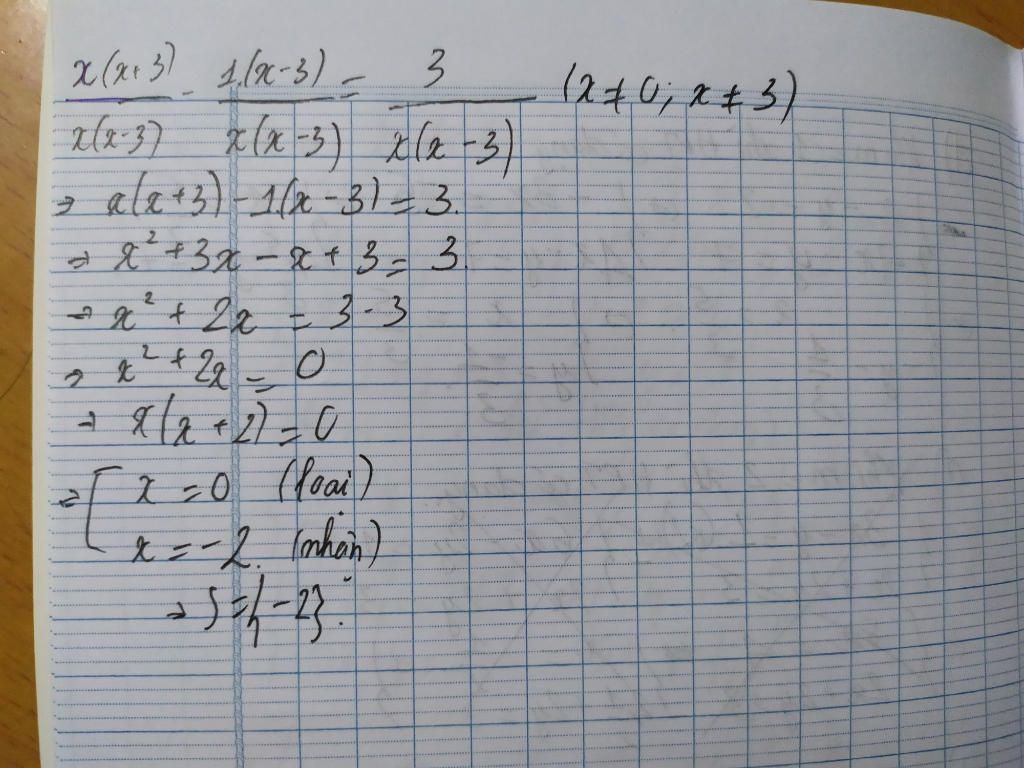 x(x+3)/x(x-3) - 1.(x-3)/x(x-3) = 3/x(x-3) (x≠0; x≠3)
⇒ x(x+3)-1(x-3) = 3.
⇒ x² + 3x - x + 3 = 3.
⇒ x² + 2x = 3-3
⇒ x² + 2x = 0
⇒ x(x+2) = 0
⇒ [ x = 0 (loại)
x = -2. (nhận)
⇒ S = {-2}.